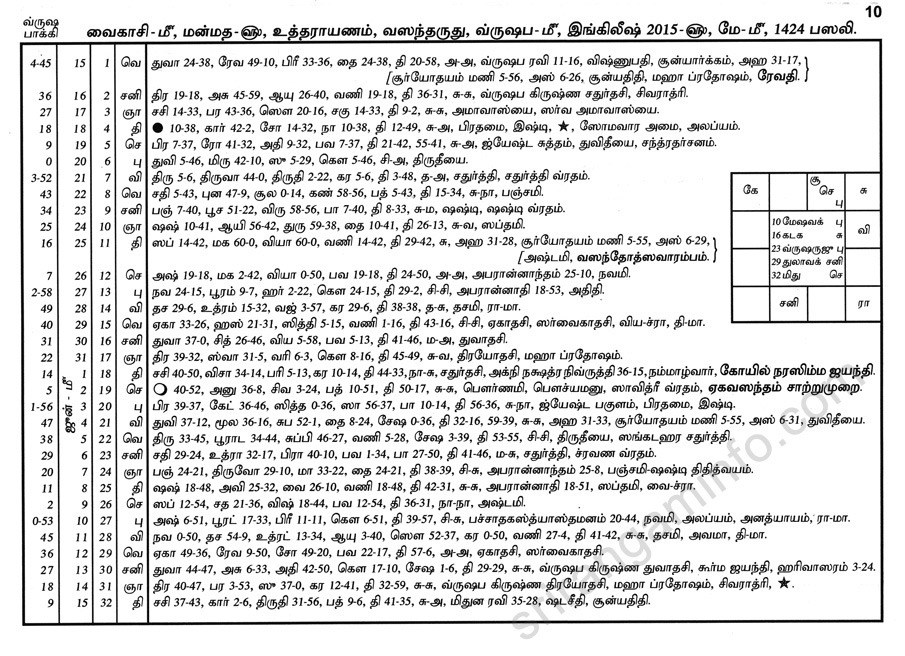 10
வ்ருஷ பாக்கி
வைகாசி-மீ, மன்மத-௵, உத்தராயணம், வஸந்தருது, வ்ருஷப-மீ, இங்கிலீஷ் 2015-௵, மே-மீ, 1424 பஸலி.
4-45 15 1 வெ துவா 24-38, ரேவ 49-10, பிரீ 33-36, தை 24-38, தி 20-58, அ-அ, வ்ருஷப ரவி 11-16, விஷ்ணுபதி, சூன்யார்க்கம், அஹ 31-17,
[சூர்யோதயம் மணி 5-56, அஸ் 6-26, சூன்யதிதி, மஹா ப்ரதோஷம், ரேவதி.
36 16 2 சனி திர 19-18, அசு 45-59, ஆயு 26-40, வணி 19-18, தி 36-31, சு-சு, வ்ருஷப கிருஷ்ண சதுர்தசி, சிவராத்ரி.
27 17 3 ஞா சசி 14-33, பர 43-36, ஸௌ 20-16, சகு 14-33, தி 9-2, சு-சு, அமாவாஸ்யை, ஸர்வ அமாவாஸ்யை.
18 18 4 தி ● 10-38, கார் 42-2, சோ 14-32, நா 10-38, தி 12-49, சு-அ, பிரதமை, இஷ்டி, ★, ஸோமவார அமை, அலப்யம்.
9 19 5 செ பிர 7-37, ரோ 41-32, அதி 9-32, பவ 7-37, தி 21-42, 55-41, சு-அ, ஜ்யேஷ்ட சுத்தம், துவிதீயை, சந்த்ரதர்சனம்.
0 20 6 பு துவி 5-46, மிரு 42-10, ஸு 5-29, கௌ 5-46, சி-அ, திருதீயை.
3-52 21 7 வி திரு 5-6, திருவா 44-0, திருதி 2-22, கர 5-6, தி 3-48, த-அ, சதுர்த்தி, சதுர்த்தி வ்ரதம்.
43 22 8 வெ சதி 5-43, புன 47-9, சூல 0-14, கண் 58-56, பத் 5-43, தி 15-34, சு-நா, பஞ்சமி.
34 23 9 சனி பஞ் 7-40, பூச 51-22, விரு 58-56, பா 7-40, தி 8-33, சு-ம, ஷஷ்டி, ஷஷ்டி வ்ரதம்.
25 24 10 ஞா ஷஷ் 10-41, ஆயி 56-42, துரு 59-38, தை 10-41, தி 26-13, சு-வ, ஸப்தமி.
16 25 11 தி ஸப் 14-42, மக 60-0, வியா 60-0, வணி 14-42, தி 29-42, சு, அஹ 31-28, சூர்யோதயம் மணி 5-55, அஸ் 6-29,
[அஷ்டமி, வஸந்தோத்ஸவாரம்பம்.
7 26 12 செ அஷ் 19-18, மக 2-42, வியா 0-50, பவ 19-18, தி 24-50, அ-அ, அபரான்னாந்தம் 25-10, நவமி.
2-58 27 13 பு நவ 24-15, பூரம் 9-7, ஹர் 2-22, கௌ 24-15, தி 29-2, சி-சி, அபரான்னாதி 18-53, அதிதி.
49 28 14 வி தச 29-6, உத்ரம் 15-32, வஜ் 3-57, கர 29-6, தி 38-38, த-சு, தசமி, ரா-மா.
40 29 15 வெ ஏகா 33-26, ஹஸ் 21-31, ஸித்தி 5-15, வணி 1-16, தி 43-16, சி-சி, ஏகாதசி, ஸர்வைகாதசி, விய-ச்ரா, தி-மா.
31 30 16 சனி துவா 37-0, சித் 26-46, விய 5-58, பவ 5-13, தி 41-46, ம-அ, துவாதசி.
22 31 17 ஞா திர 39-32, ஸ்வா 31-5, வரி 6-3, கௌ 8-16, தி 45-49, சு-வ, திரயோதசி, மஹா ப்ரதோஷம்.
ஜூன்-மீ
14 1 18 தி சசி 40-50, விசா 34-14, பரி 5-13, கர 10-14, தி 44-33, நா-சு, சதுர்தசி, அக்நி நக்ஷத்ர நிவ்ருத்தி 36-15, நம்மாழ்வார், கோயில் நரஸிம்ம ஜயந்தி.
5 2 19 செ ○ 40-52, அனு 36-8, சிவ 3-24, பத் 10-51, தி 50-17, சு-சு, பௌர்ணமி, பௌச்யமனு, ஸாவித்ரீ வ்ரதம், ஏகவஸந்தம் சாற்றுமுறை.
1-56 3 20 பு பிர 39-37, கேட் 36-46, ஸித்த 0-36, ஸா 56-37, பா 10-14, தி 56-36, சு-நா, ஜ்யேஷ்ட பகுளம், பிரதமை, இஷ்டி.
47 4 21 வி துவி 37-12, மூல 36-16, சுப 52-1, தை 8-24, சேஷ 0-36, தி 32-16, 59-39, சு-சு, அஹ 31-33, சூர்யோதயம் மணி 5-55, அஸ் 6-31, துவிதீயை.
38 5 22 வெ திரு 33-45, பூராட 34-44, சுப்பி 46-27, வணி 5-28, சேஷ 3-39, தி 53-55, சி-சி, திருதீயை, ஸங்கடஹர சதுர்த்தி.
29 6 23 சனி சதி 29-24, உத்ரா 32-17, பிரா 40-10, பவ 1-34, பா 27-50, தி 41-46, ம-சு, சதுர்த்தி, ச்ரவண வ்ரதம்.
20 7 24 ஞா பஞ் 24-21, திருவோ 29-10, மா 33-22, தை 24-21, தி 38-39, சி-சு, அபரான்னாந்தம் 25-8, பஞ்சமி-ஷஷ்டி திதித்வயம்.
11 8 25 தி ஷஷ் 18-48, அவி 25-32, வை 26-10, வணி 18-48, தி 42-31, சு-சு, அபரான்னாதி 18-51, ஸப்தமி, வை-ச்ரா.
2 9 26 செ ஸப் 12-54, சத 21-36, விஷ் 18-44, பவ 12-54, தி 36-31, நா-நா, அஷ்டமி.
0-53 10 27 பு அஷ் 6-51, பூரட் 17-33, பிரீ 11-11, கௌ 6-51, தி 39-57, சி-சு, பச்சாதகஸ்த்யாஸ்தமனம் 20-44, நவமி, அலப்யம், அனத்யாயம், ரா-மா.
45 11 28 வி நவ 0-50, தச 54-9, உத்ரட் 13-34, ஆயு 3-40, ஸௌ 52-37, கர 0-50, வணி 27-4, தி 41-42, சு-சு, தசமி, அவமா, தி-மா.
36 12 29 வெ ஏகா 49-36, ரேவ 9-50, சோ 49-20, பவ 22-17, தி 57-6, அ-அ, ஏகாதசி, ஸர்வைகாதசி.
27 13 30 சனி துவா 44-47, அசு 6-33, அதி 42-50, கௌ 17-10, சேஷ 1-6, தி 29-29, சு-சு, வ்ருஷப கிருஷ்ண துவாதசி, கூர்ம ஜயந்தி, ஹரிவாஸரம் 3-24.
18 14 31 ஞா திர 40-47, பர 3-53, ஸு 37-0, கர 12-41, தி 32-59, சு-சு, வ்ருஷப கிருஷ்ண திரயோதசி, மஹா ப்ரதோஷம், சிவராத்ரி, ★.
9 15 32 தி சசி 37-43, கார் 2-6, திருதி 31-56, பத் 9-6, தி 41-35, சு-அ, மிதுன ரவி 35-28, ஷடசீதி, சூன்யதிதி.
கே
சூ செ பு
சு
வி
10 மேஷவக் பு
16 கடக சு
23 வ்ருஷருஜு பு
29 துலாவக் சனி
32 மிது செ
சனி
ரா
srirangaminfo.com